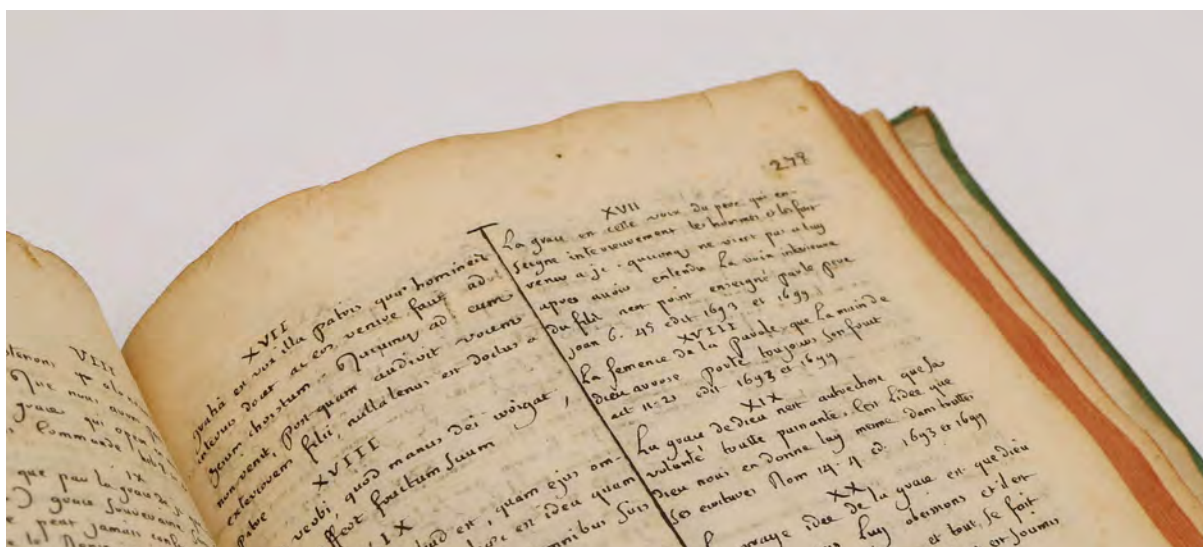 blenons VIII
Que nous avons
grace qui opere
Commande heb.
IX
que par la grace de J.
grace souveraine
peut jamais
XVII
gratia est vox illa patris quae homines
interius docet ac eos venire facit ad
jesum christum. Quicunque ad eum
non venit, postquam audivit vocem
exteriorem filii, nullatenus est doctus a
patre
XVIII
verbi, quod manus dei irrigat,
affert fructum suum
IX
aliud est, quam ejus om-
haec est idea quam
omnibus suis
278
XVII
La grace est cette voix du pere qui en-
seigne interieurement les hommes et les fait
venir a j.c. quiconq ne vient pas a luy
apres avoir entendu la voix interieure
du fils nest point enseigné par le pere
joan 6. 45 edit 1693 et 1699
XVIII
La semence de la parole, que la main de
dieu arrose porte toujours son fruit
act 11-21 edit 1693 et 1699
XIX
La grace de dieu nest autre chose que sa
volonté toutte puissante, Cest lidee que
dieu nous en donne luy meme dans touttes
ses ecritures Rom 14. 4 ed. 1693 et 1699
XX
La vraye idee de la grace est que dieu
luy obeissions et il est
et tout se fait
est soumis